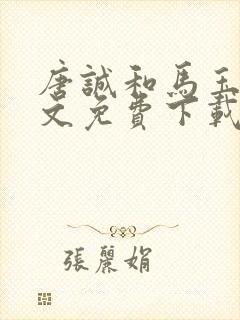 唐誠和馬玉
文免費下載
張麗娟